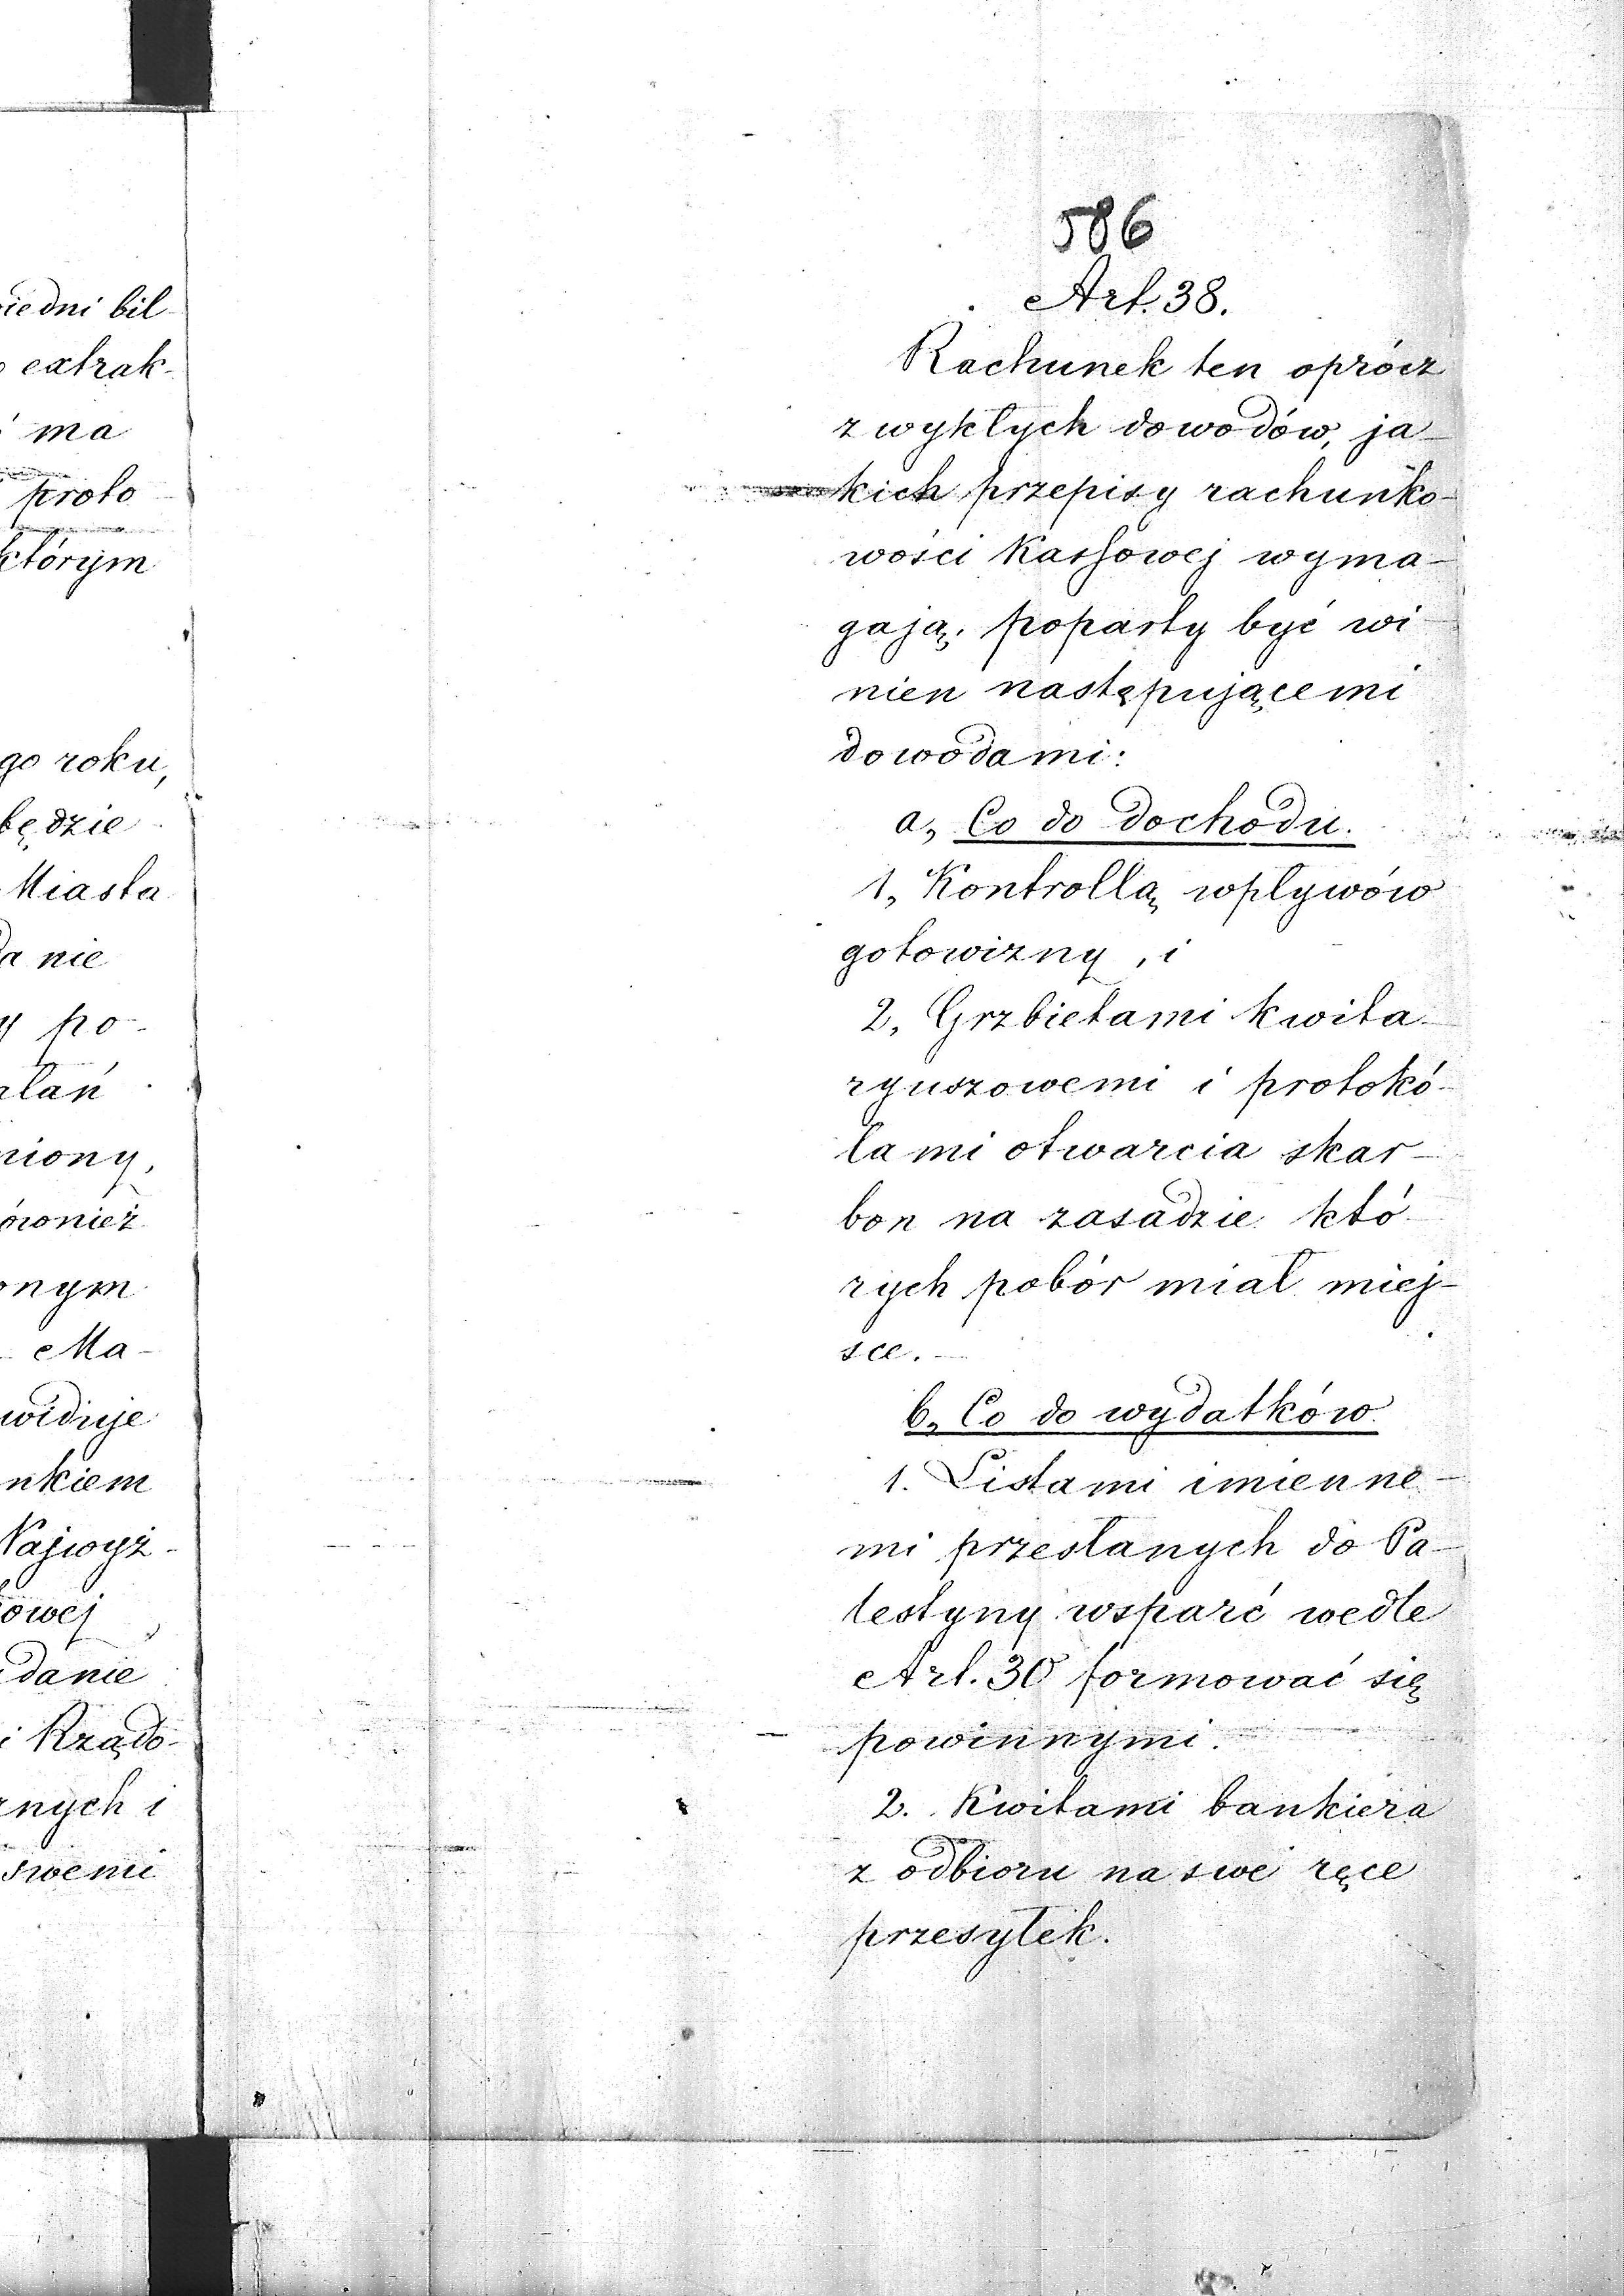 iedni bil-
extrak-
ma
proto
którym
go roku,
będzie
Miasta
a nie
y po-
niony,
ównież
onym
Ma-
widuje
nkiem
Najwyż-
owej
danie
i Rządo-
nych i
swemi
586
Art. 38.
Rachunek ten oprócz
zwykłych dowodów, ja-
kich przepisy rachunko-
wości Kassowej wyma-
gają, poparty być wi
nien następującemi
dowodami:
a, Co do dochodu.
1, Kontrollą wpływów
gotowizny, i
2, Grzbietami kwita-
ryuszowemi i protokó-
łami otwarcia skar-
bon na zasadzie któ-
rych pobór miał miej-
sce. -
b, Co do wydatków.
1. Listami imienne-
mi przesłanych do Pa-
lestyny wsparć wedle
Art. 30 formować się
powinnymi.
2. Kwitami bankiera
z odbioru na swe ręce
przesyłek.